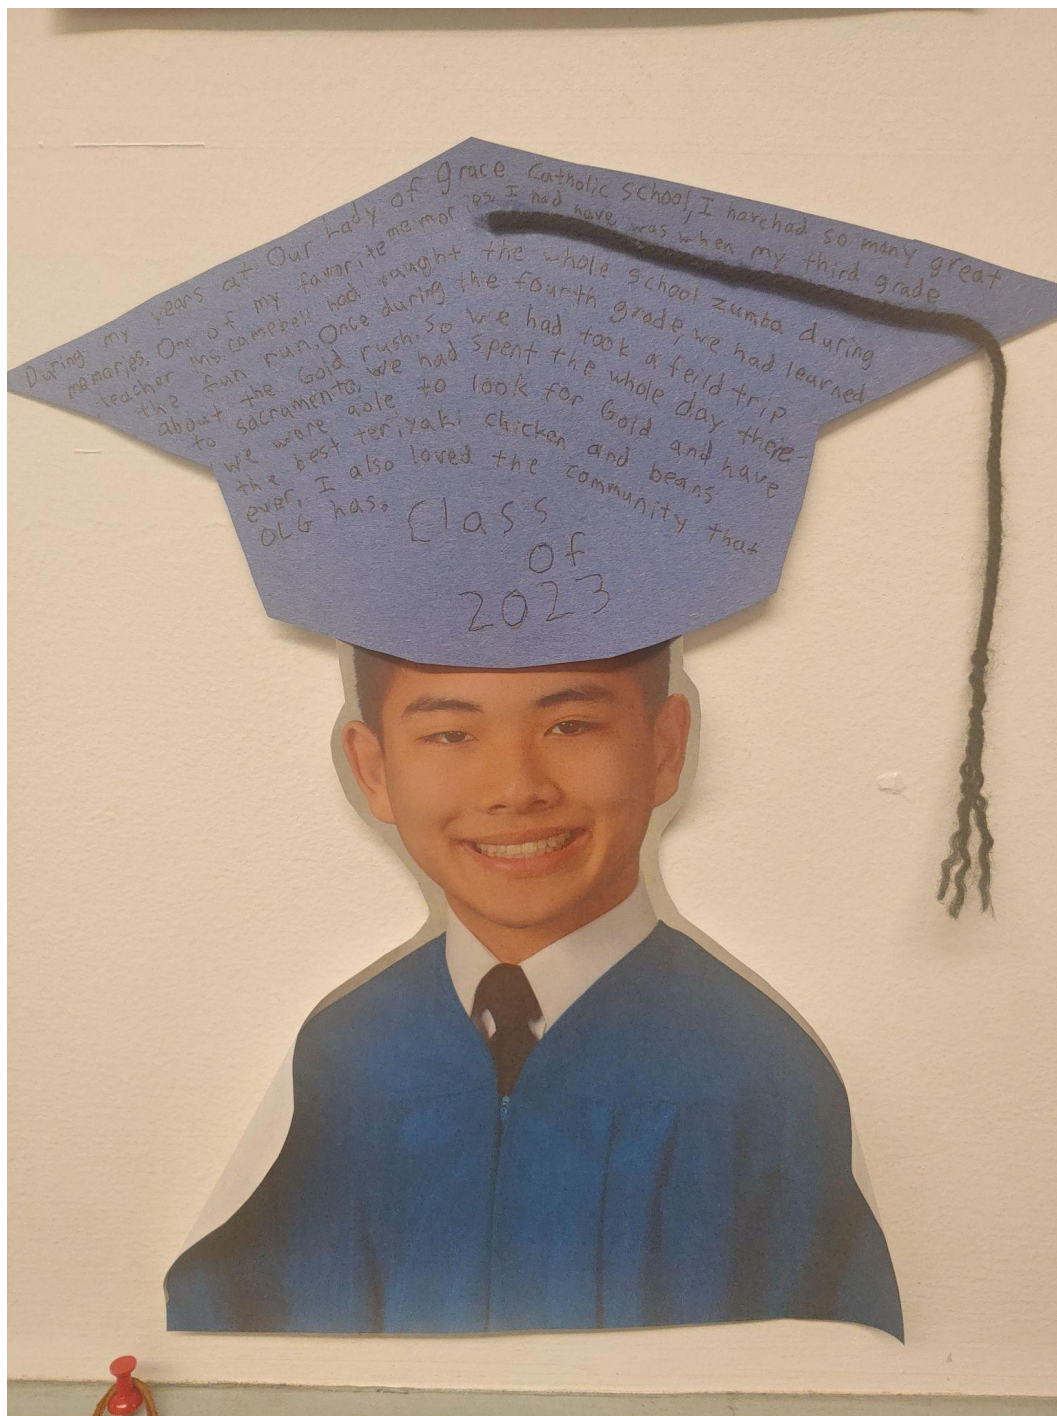 During my years at Our Lady of grace Catholic School, I have had so many great
memories, One of my favorite memories I had have, was when my third grade
teacher Ms. Campbell had taught the whole school zumba during
the fun run, Once during the fourth grade, we had learned
about the Gold rush. So we had took a feild trip
to sacramento, we had spent the whole day there-
we were aole to look for Gold and have
the best teriyaki chicken and beans
ever, I also loved the community that
OLG has.
Class
of
2023